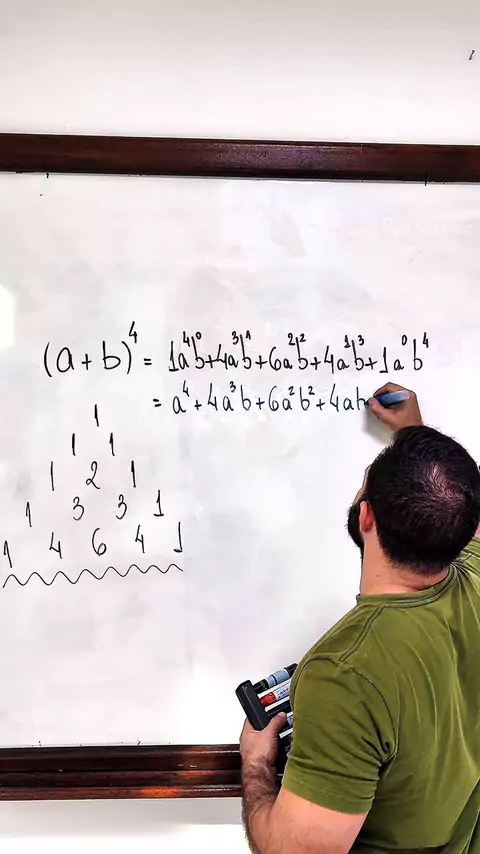 (a+b)⁴ = 1a⁴b⁰+4a³b¹+6a²b²+4a¹b³+1a⁰b⁴
= a⁴+4a³b+6a²b²+4ab
1
1 1
1 2 1
1 3 3 1
1 4 6 4 1